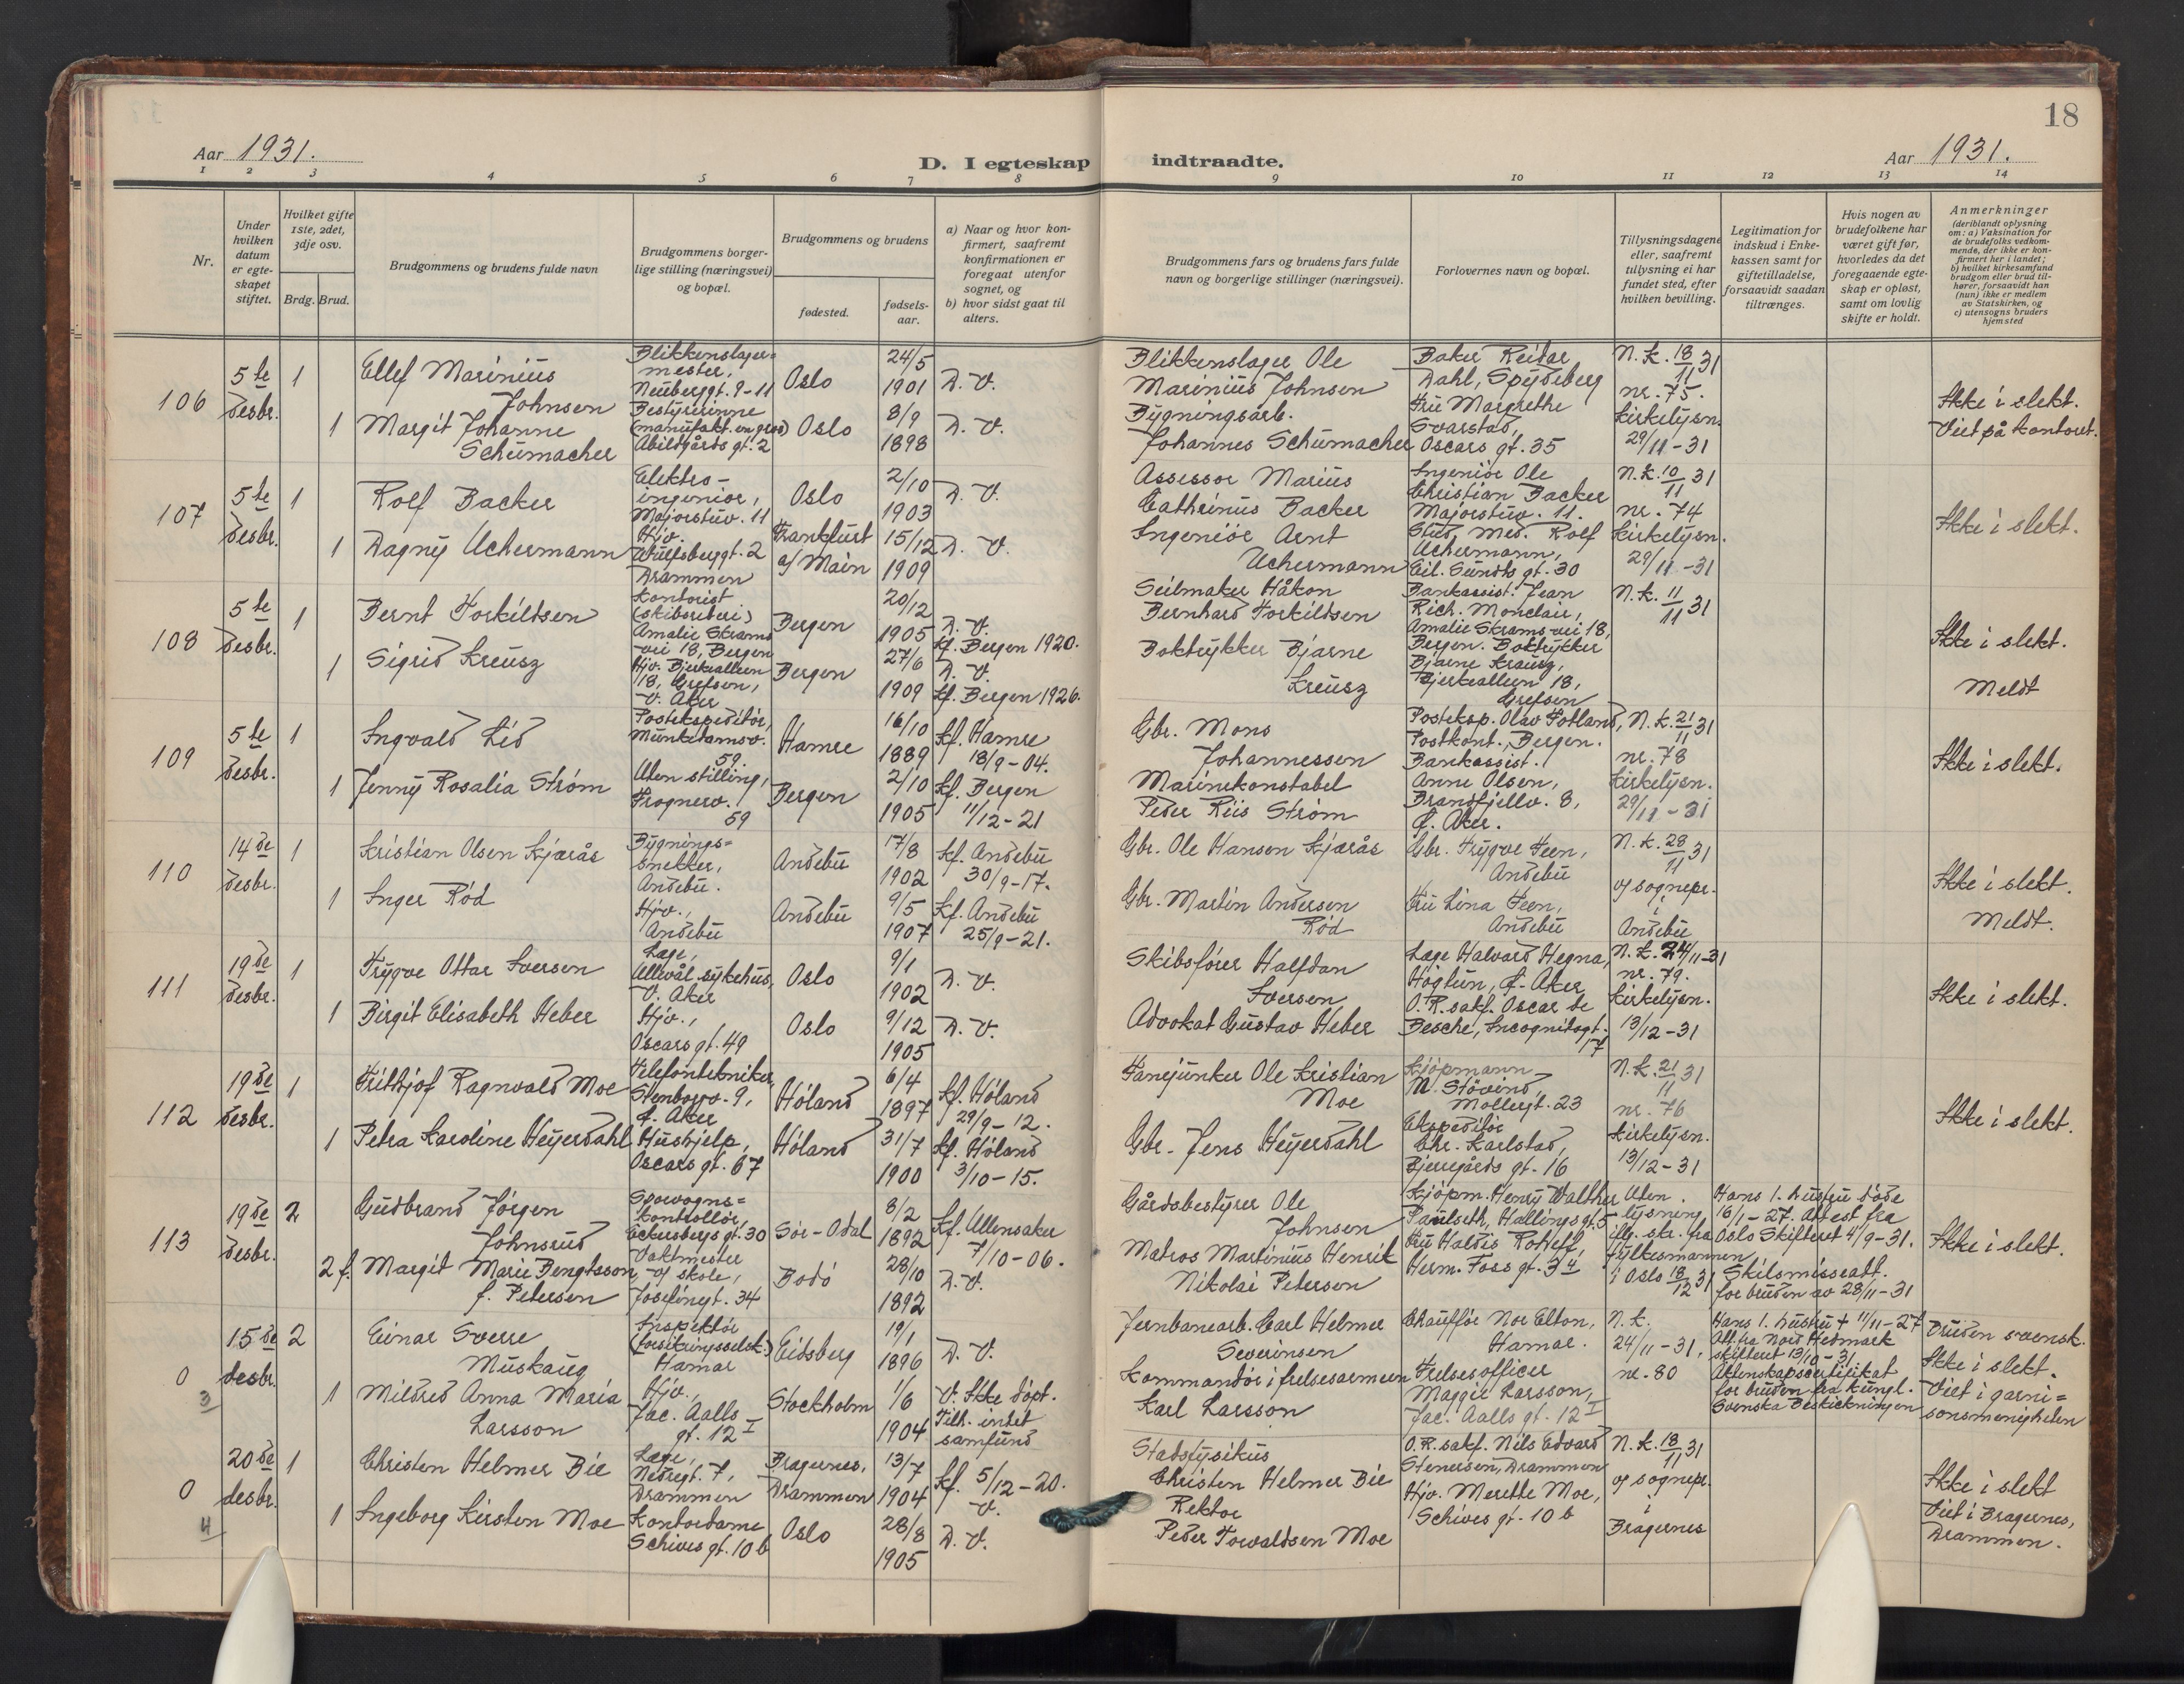 18
Aar 1931.
D. I egteskap indtraadte.
Aar 1931.
1 2 3 4 5 6 7 8 9 10 11 12 13 14
Nr.
Under hvilken datum er egteskapet stiftet.
Hvilket gifte 1ste, 2det, 3dje osv.
Brdg. Brud.
Brudgommens og brudens fulde navn
Brudgommens borgerlige stilling (næringsvei) og bopæl.
Brudgommens og brudens
fødested.
fødselsaar.
a) Naar og hvor konfirmert, saafremt konfirmationen er foregaat utenfor sognet, og
b) hvor sidst gaat til alters.
Brudgommens fars og brudens fars fulde navn og borgerlige stillinger (næringsveier).
Forlovernes navn og bopæl.
Tillysningsdagene eller, saafremt tillysning ei har fundet sted, efter hvilken bevilling.
Legitimation for indskud i Enkekassen samt for giftetilladelse, forsaavidt saadan tiltrænges.
Hvis nogen av brudefolkene har været gift før, hvorledes da det foregaaende egteskap er opløst, samt om lovlig skifte er holdt.
Anmerkninger
(deriblandt oplysning om: a) Vaksination for de brudefolks vedkommende, der ikke er konfirmert her i landet; b) hvilket kirkesamfund brudgom eller brud tilhører, forsaavidt han (hun) ikke er medlem av Statskirken, og c) utensogns bruders hjemsted
106
5te desbr.
1
Ellef Marinius Johnsen
Blikkenslagermester, Neuberggt. 9-11
Oslo
24/5 1901
D. V.
Blikkenslager Ole Marinius Johnsen
Baker Reidar Dahl, Spydeberg
N.k. 18/11 31 nr. 75.
1
Margit Johanne Schumacher
Bestyrerinne (manufakt. en gros) Abildgårds gt. 2
Oslo
8/9 1898
D. V.
Bygningsarb. Johannes Schumacher
Fru Margrethe Svarstad, Oscars gt. 35
Kirkelysn. 29/11-31
Ikke i slekt.
Viet på kontoret.
107
5te desbr.
1
Rolf Backer
Elektroingeniør, Majorstuv. 11
Oslo
2/10 1903
D. V.
Assessor Marius Cathrinus Backer
Ingeniør Ole Christian Backer Majorstuv. 11.
N.k. 10/11 31 nr. 74
1
Dagny Uchermann
Hjv. Wulfsberggt. 2 Drammen
Frankfurt a/ Main
15/12 1909
D. V.
Ingeniør Arnt Uchermann
Stud. Med. Rolf Uchermann, Eil. Sundts gt. 30
Kirkelysn. 29/11-31
Ikke i slekt.
108
5te desbr.
1
Bernt Torkildsen
Kontorist (skibsrederi) Amalie Skramsvei 18, Bergen
Bergen
20/12 1905
D. V. Kf. Bergen 1920.
Seilmaker Håkon Bernhard Torkildsen
Bankassist. Jean Rich. Monclair, Amalie Skramsvei 18, Bergen.
N.k. 11/11 31
1
Sigrid Kreusz
Hjv. Bjerkealleen 18, Grefsen, V. Aker
Bergen
27/6 1909
D. V. Kf. Bergen 1926.
Boktrykker Bjarne Kreusz
Boktrykker Bjarne Kreusz, Bjerkealleen 18, Grefsen
Ikke i slekt.
Meldt
109
5te desbr.
1
Ingvald Lid
Postekspeditør, Munkedamsv. 59.
Hamre
16/10 1889
Kf. Hamre 18/9-04.
Gbr. Mons Johannessen
Posteksp. Olav Fotland, Postkont., Bergen.
N.k. 21/11 31 nr. 78
1
Jenny Rosalia Strøm
Uten stilling, Frognerv. 59
Bergen
2/10 1905
Kf. Bergen 11/12-21
Marinekonstabel Peder Riis Strøm
Bankassist. Anne Olsen, Brandfjellv. 8, Ø. Aker.
Kirkelysn. 29/11-31
Ikke i slekt.
110
14de desbr.
1
Kristian Olsen Kjærås
Bygningssnekker, Andebu.
Andebu
17/8 1902
Kf. Andebu 30/9-17.
Gbr. Ole Hansen Kjærås
Gbr. Trygve Feen, Andebu
N.k. 28/11 31
1
Inger Rød
Hjv., Andebu
Andebu
9/5 1907
Kf. Andebu 25/9-21.
Gbr. Martin Andersen Rød
Fru Lina Feen, Andebu
og sognepr. i Andebu
Ikke i slekt.
Meldt.
111
19de desbr.
1
Trygve Ottar Iversen
Læge, Ullevål sykehus, V. Aker
Oslo
9/1 1902
D. V.
Skibsfører Halfdan Iversen
Læge Halvard Hegna, Høgtun, Ø. Aker
N.k. 24/11-31 nr. 79.
1
Birgit Elisabeth Heber
Hjv., Oscars gt. 49
Oslo
9/12 1905
D. V.
Advokat Gustav Heber
O.R.sakf. Oscar de Besche, Incognitogt. 17
Kirkelysn. 13/12-31
Ikke i slekt.
112
19de desbr.
1
Frithjof Ragnvald Moe
Telefontekniker, Stenborgv. 9, Ø. Aker
Høland
6/4 1897
Kf. Høland 29/9-12.
Fanejunker Ole Kristian Moe
Kjøpmann M. Støvind, Møllergt. 23
N.k. 21/11 31 nr. 76
1
Petra Karoline Heyerdahl
Hushjelp, Oscars gt. 67
Høland
31/7 1900
Kf. Høland 3/10-15.
Gbr. Jens Heyerdahl
Ekspeditør Chr. Karlstad, Bjerregårds gt. 16
Kirkelysn. 13/12-31
Ikke i slekt.
113
19de desbr.
2
Gudbrand Jørgen Johnsrud
Sporvognskontrollør, Eckersbergs gt. 30
Sør-Odal
8/2 1892
Kf. Ullensaker 7/10-06.
Gårdsbestyrer Ole Johnsen
Kjøpm. Henry Walther Paulseth, Hallings gt. 5
Uten lysning iflg. skr. fra fylkesmannen i Oslo 18/12 31
Hans 1. hustru døde 16/1-27. Attest fra Oslo Skifterett 4/9-31.
2 f.
Margit Marie Bengtsson f. Petersen
Vaktmester og skole, Josefinegt. 34
Bodø
28/10 1892
D. V.
Matros Martinius Henrik Nikolai Petersen
Fru Haldis Herm. Foss gt. 34
Skilsmisseatt. for bruden av 28/11-31
Ikke i slekt.
0
3
15de desbr.
2
Einar Sverre Muskaug
Inspektør (forsikringsselsk.) Hamar
Eidsberg
19/1 1896
D. V.
Jernbanearb. Carl Helmer Severinsen
Chauffør Nor Elton, Hamar.
N.k. 24/11-31, nr. 80
Hans 1. hustru † 11/11-27 Att. fra Nord Hedmark skifterett 13/10-31
1
Mildred Anna Maria Larsson
Hjv., Jac. Aalls gt. 12 I
Stockholm
1/6 1904
V. Ikke døpt. Tilh. intet samfund
Kommandør i frelsesarmeen Karl Larsson
Frelsesofficer Maggie Larsson, Jac. Aalls gt. 12 I
Äktenskapscertifikat for bruden fra kungl. Svenska Beskickningen
Bruden svensk.
Ikke i slekt.
Viet i garnisonsmenigheten
0
4
20de desbr.
1
Christen Helmer Bie
Læge, Nedregt. 7, Drammen
Bragernes, Drammen
13/7 1904
Kf. 5/12-20. V.
Stadsfysikus Christen Helmer Bie
O.R.sakf. Nils Edvard Stenersen, Drammen
N.k. 18/11 31
1
Ingeborg Kirsten Moe
Kontordame Schives gt. 10 b
Oslo
28/8 1905
D. V.
Rektor Peder Torvaldsen Moe
Hjv. Merethe Moe, Schives gt. 10 b
og sognepr. i Bragernes
Ikke i slekt
Viet i Bragernes, Drammen.